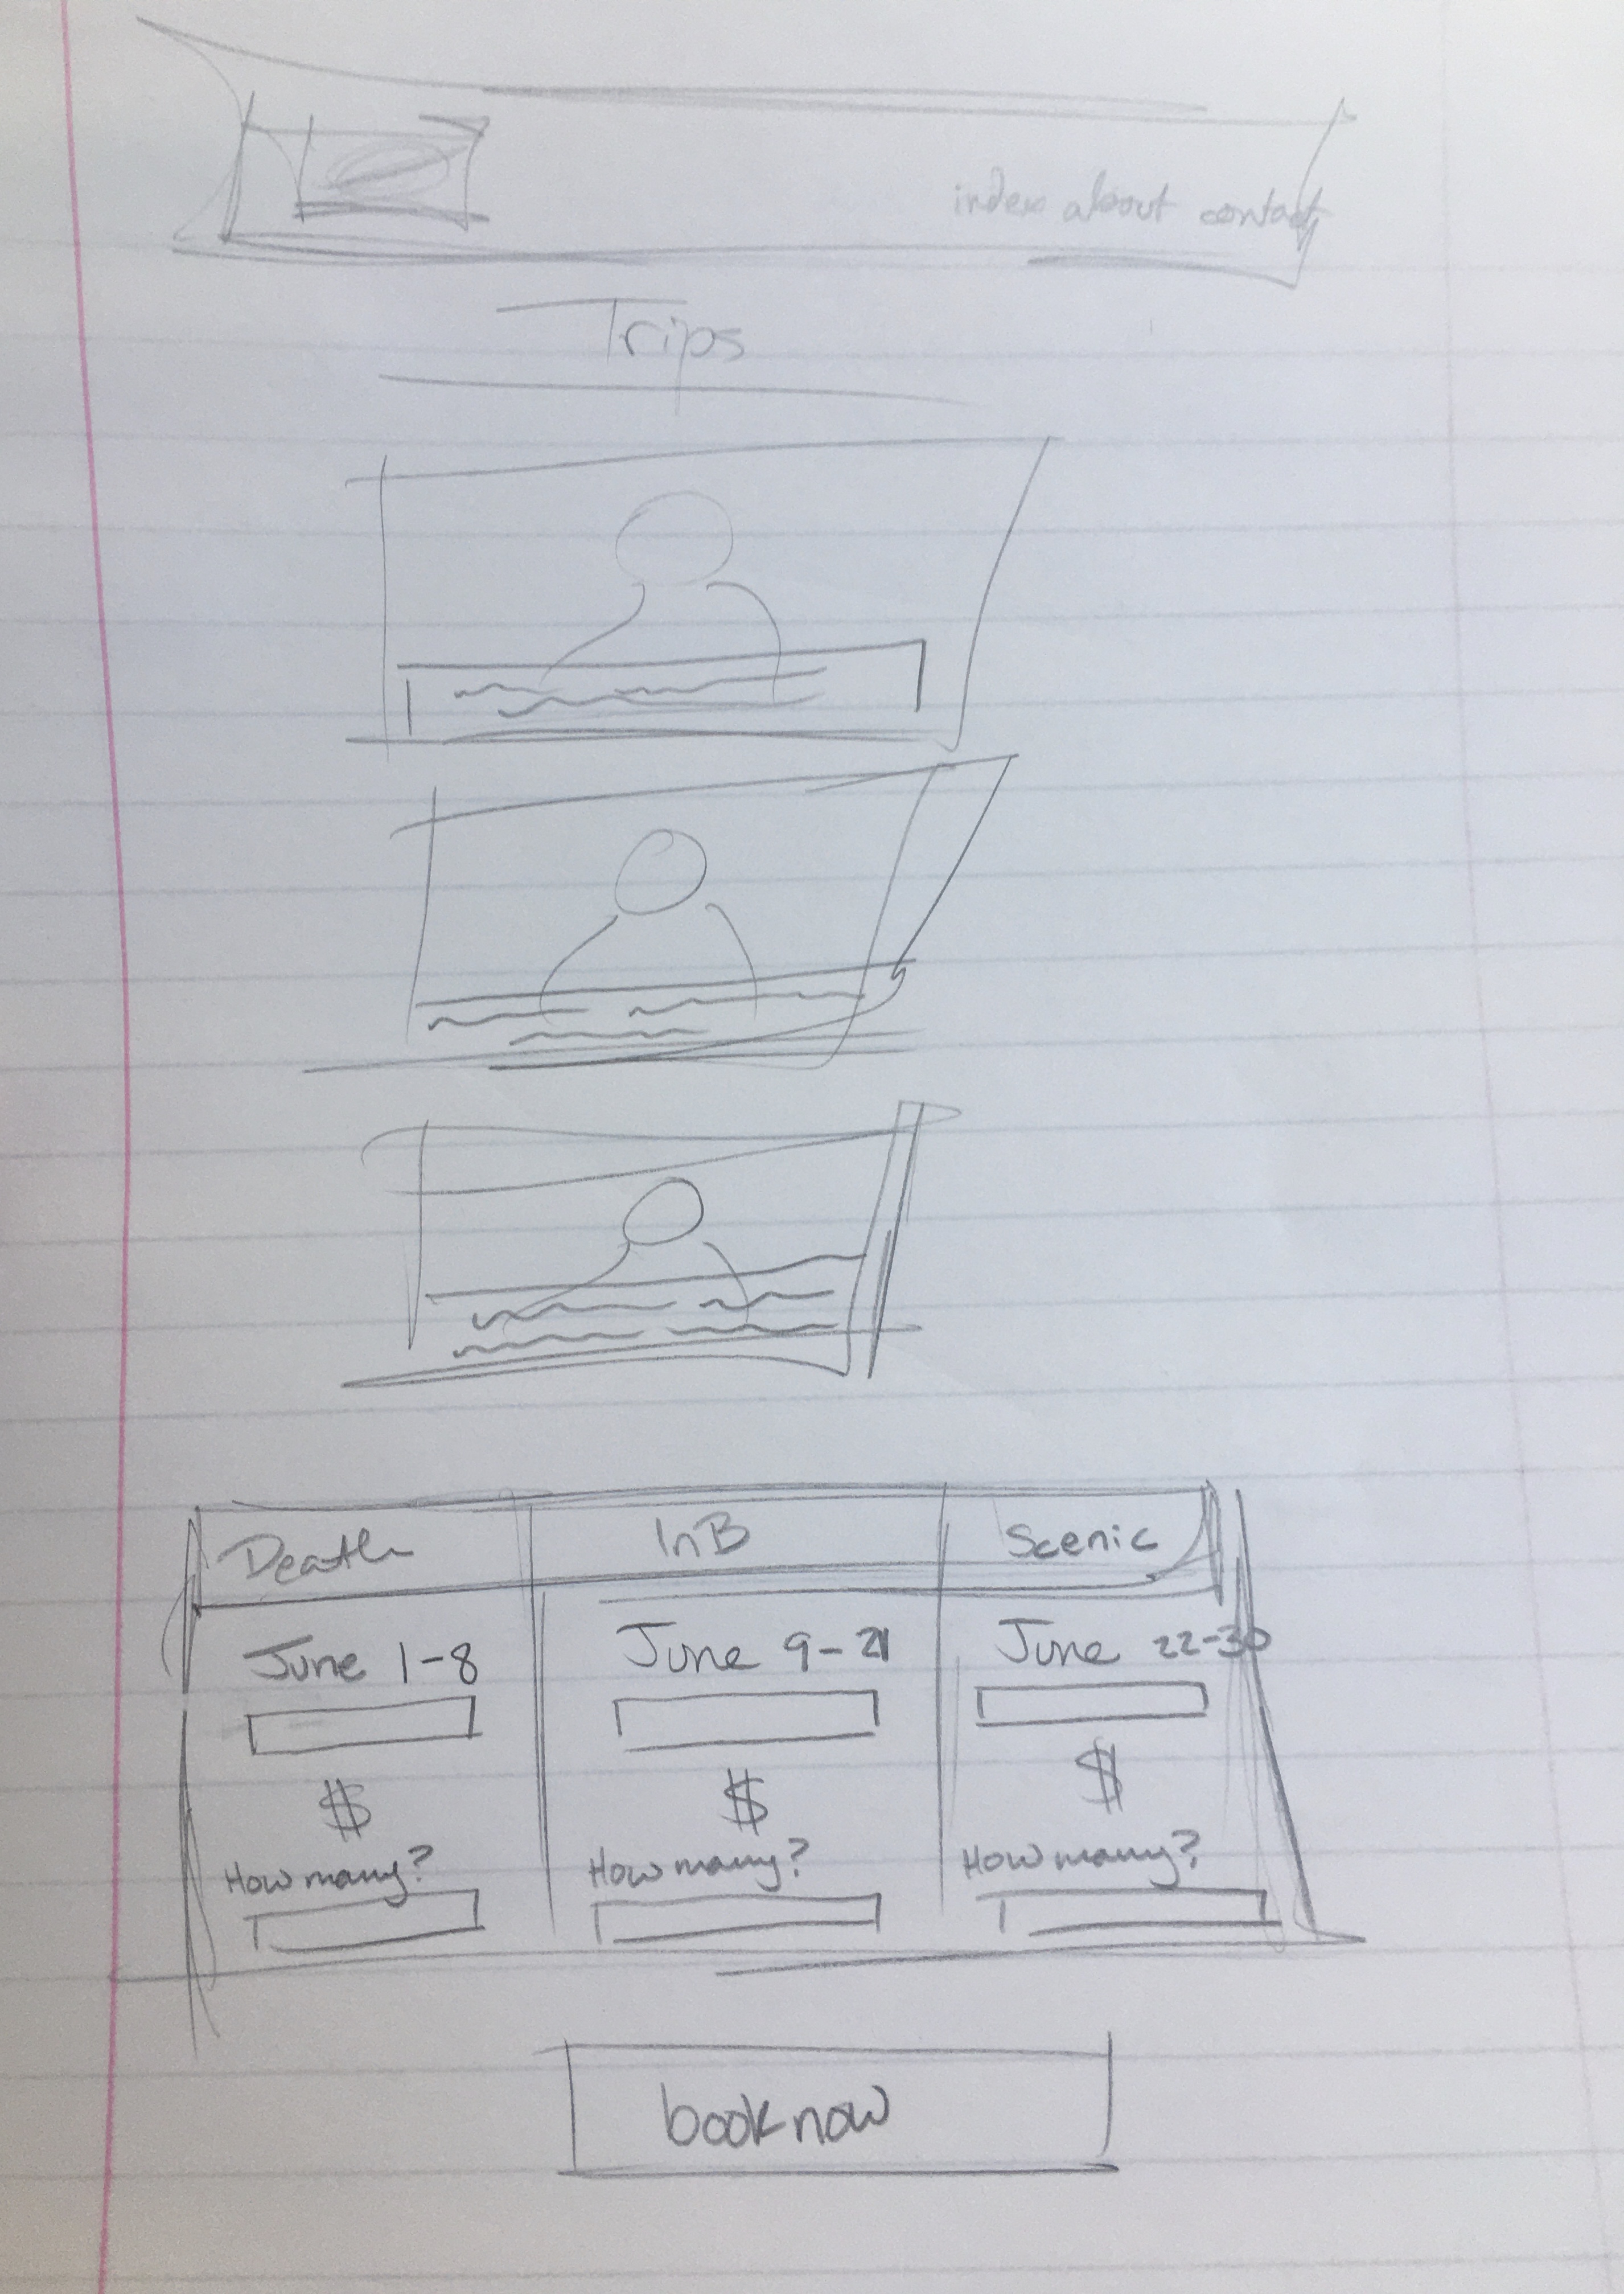 index about contact
Trips
Death InB Scenic
June 1-8 June 9-21 June 22-30
$ $ $
How many? How many? How many?
book now